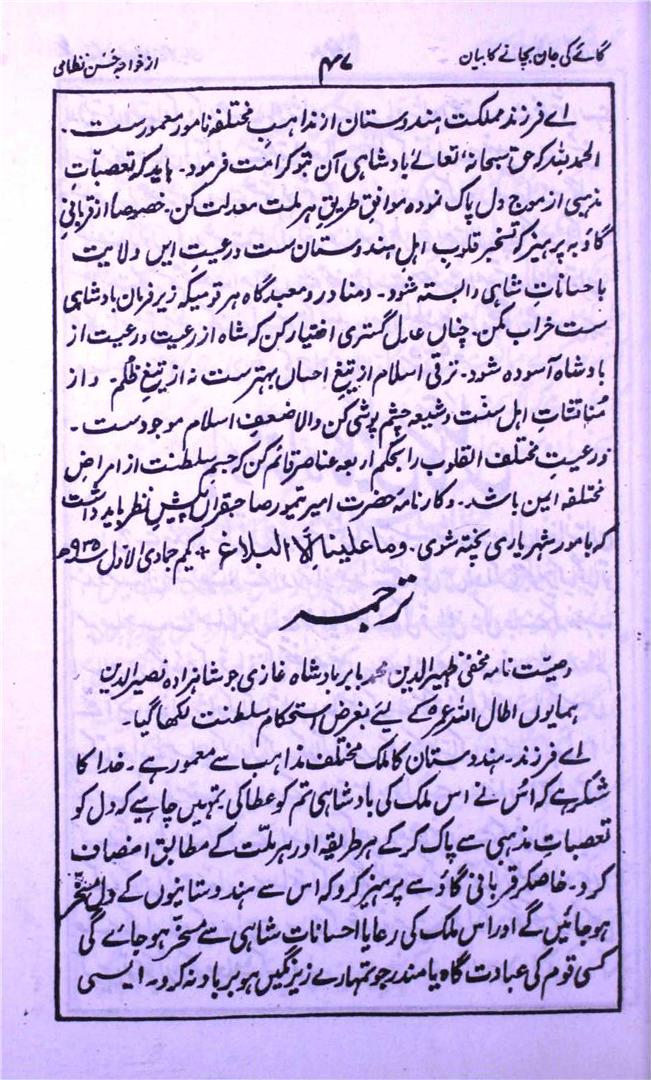 گائے کی جان بچانے کا بیان ۴۷ از خواجہ حسن نظامی
اے فرزند مملکت ہندوستان از مذاہبِ مختلفہ نامور معمورست۔
الحمدللہ کہ حق سبحانہٗ تعالےٰ بادشاہی آن بتو کرامت فرمود۔ باید کہ تعصباتِ
مذہبی از موجِ دل پاک نمودہ موافق طریقِ ہر ملت معدلت کن۔ خصوصاً از قربانیِ
گاؤ بہ پرہیز کہ تسخیر قلوبِ اہلِ ہندوستان ست و رعیتِ ایں ولایت
باحساناتِ شاہی وابستہ شود۔ ومنادر و معبدگاہ ہر قومیکہ زیر فرمان بادشاہی
ست خراب مکن۔ چناں عدل گستری اختیار کن کہ شاہ از رعیت ورعیت از
بادشاہ آسودہ شود۔ ترقی اسلام از تیغِ احساں بہتر ست نہ از تیغِ ظلم۔ و از
مناقشات اہلِ سنت وشیعہ چشم پوشی کن والا ضعفِ اسلام موجود ست۔
ورعیت مختلف القلوب را بحکم اربعہ عناصر قائم کن کہ جسمِ سلطنت از امراضِ
مختلفہ ایمن باشد۔ وکارنامہ حضرت امیر تیمور صاحبقراں پیشِ نظر باید داشت
کہ بامور شہریاری پختہ شوی۔ وما علینا الا البلاغ + یکم جمادی الاول سنہ ۹۳۵ھ
ترجمہ
وصیت نامہ مخفی ظہیرالدین محمد بابر بادشاہ غازی جو شاہزادہ نصیرالدین
ہمایوں اطال اللہ عمرہٗ کے لیے بغرض استحکام سلطنت لکھا گیا۔
اے فرزند۔ ہندوستان کا ملک مختلف مذاہب سے معمور ہے۔ خدا کا
شکر ہے کہ اُس نے اس ملک کی بادشاہی تم کو عطا کی۔ تمہیں چاہیے کہ دل کو
تعصبات مذہبی سے پاک کر کے ہر طریقہ اور ہر ملّت کے مطابق انصاف
کرو۔ خاصکر قربانی گاؤ سے پرہیز کرو کہ اس سے ہندوستانیوں کے دل مسخر
ہوجائیں گے اور اس ملک کی رعایا احساناتِ شاہی سے مسخر ہوجائے گی
کسی قوم کی عبادت گاہ یا مندر جو تمہارے زیر نگیں ہو برباد نہ کرو۔ ایسی